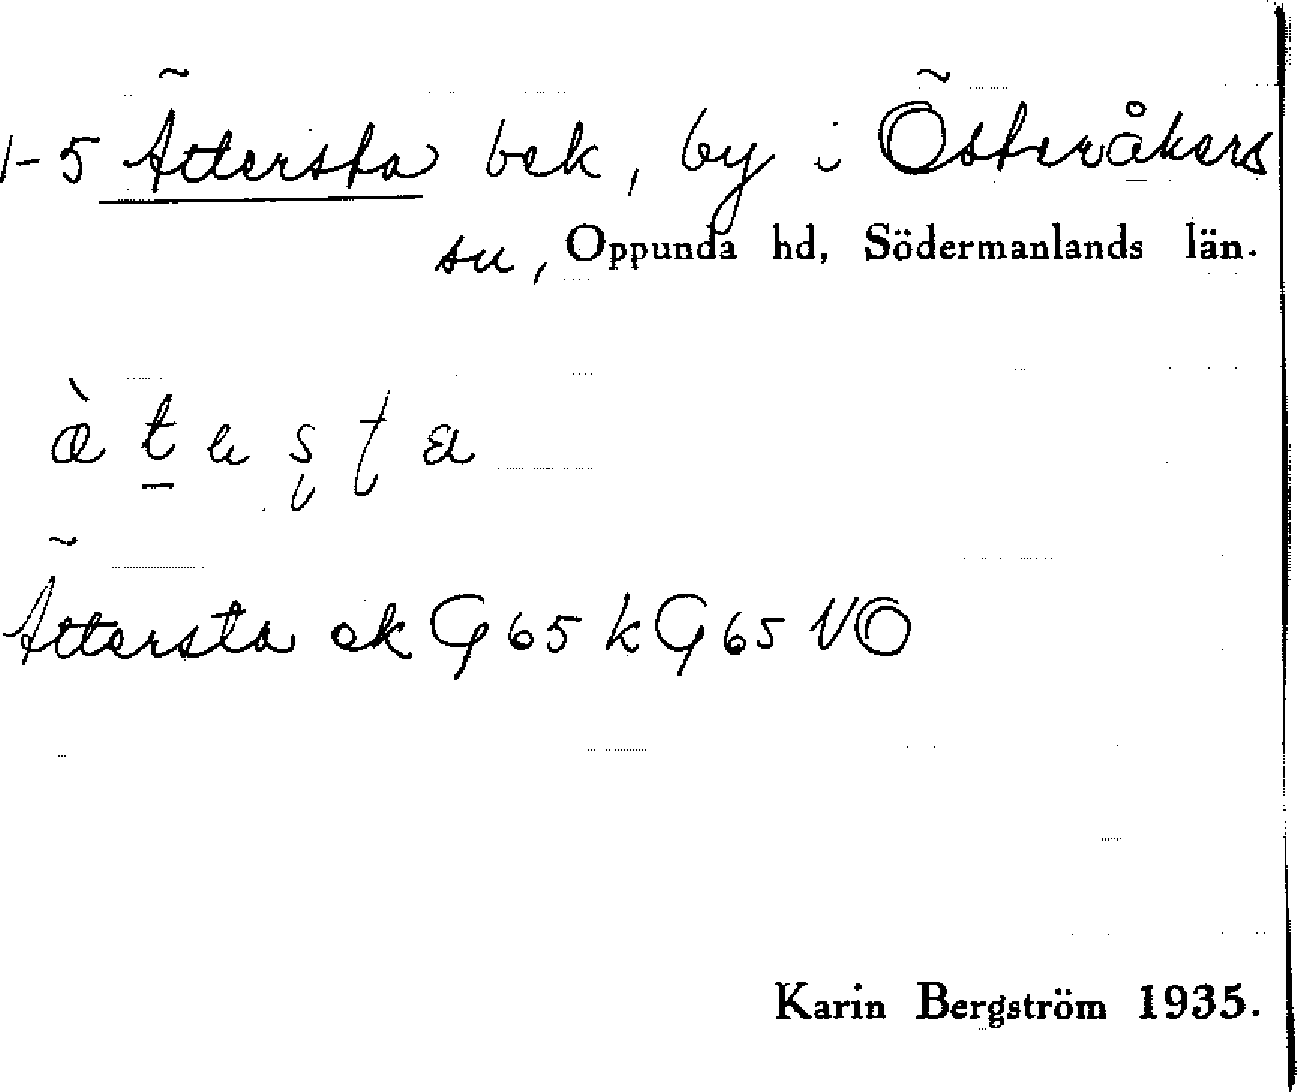 1-5 Ättersta bek, by i Österåkers
sn, Oppunda hd, Södermanlands län.
Ättersta ek G 65 k G 65 NO
Karin Bergström 1935.